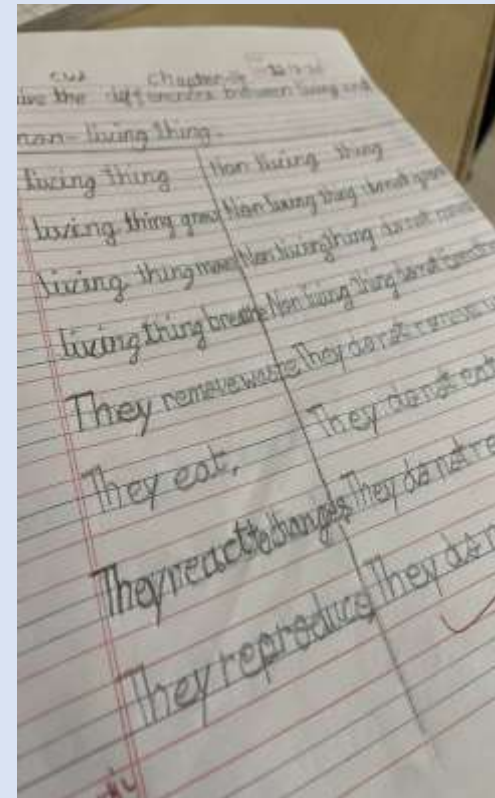 CW Chapter-
the differences between living and
non-living thing.
living thing Non living thing
living thing grow Non living thing do not grow
living thing move Non living thing do not move
living thing breathe Non living thing do not breathe
They remove waste They do not remove
They eat. They do not eat
They react to changes They do not re
They reproduce They do n